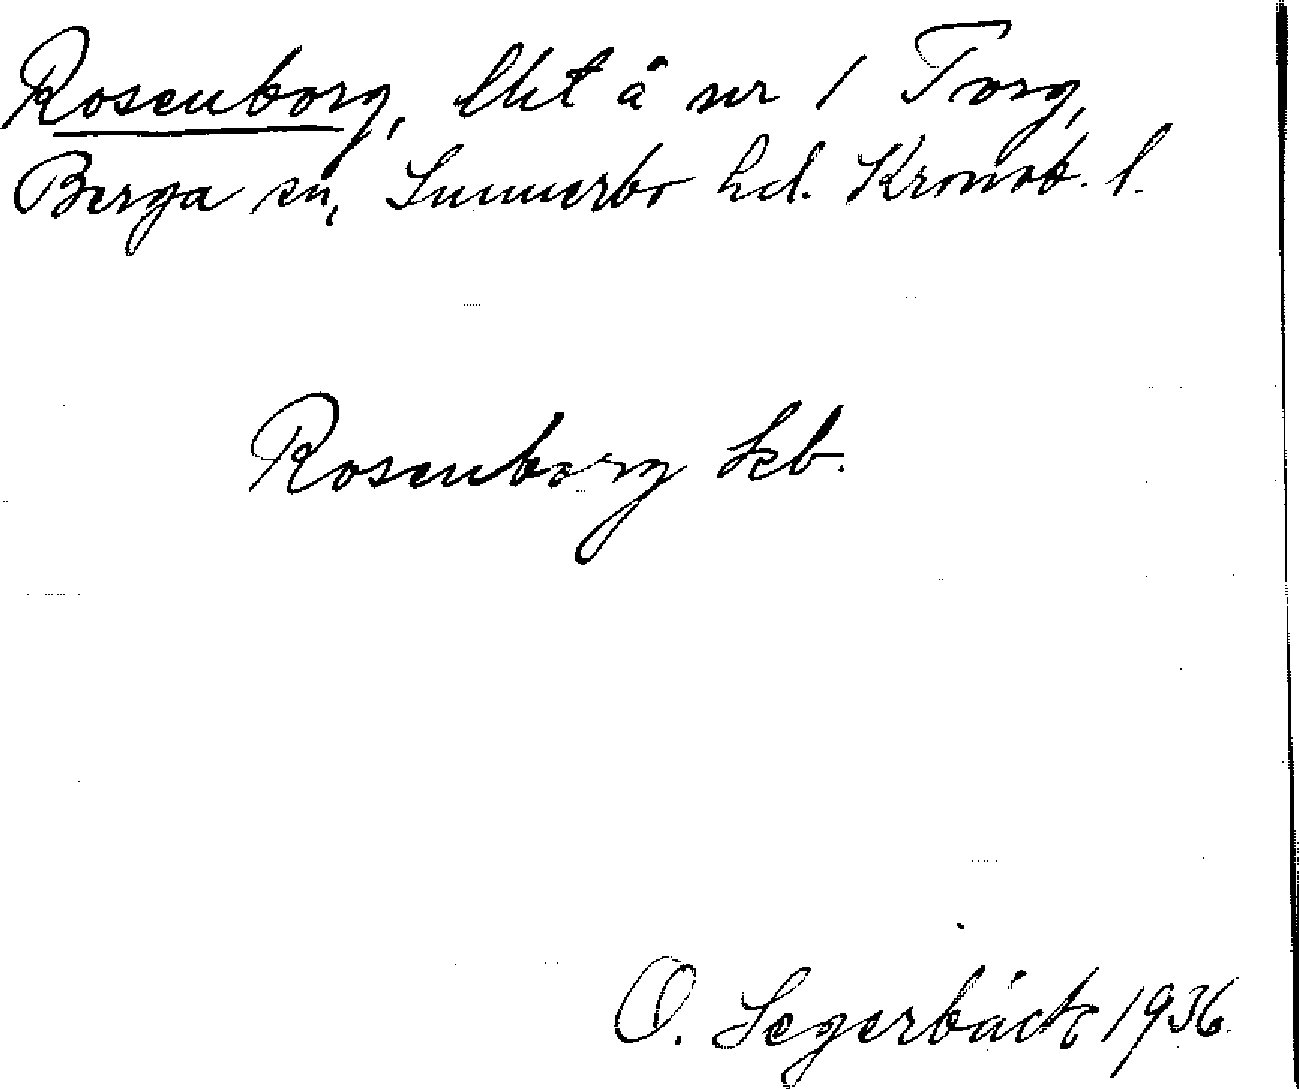 Rosenborg, lht å nr 1 Torg,
Berga sn, Sunnerbo hd. Kronob. l.
Rosenborg Jeb.
O. Segerbäck 1936.